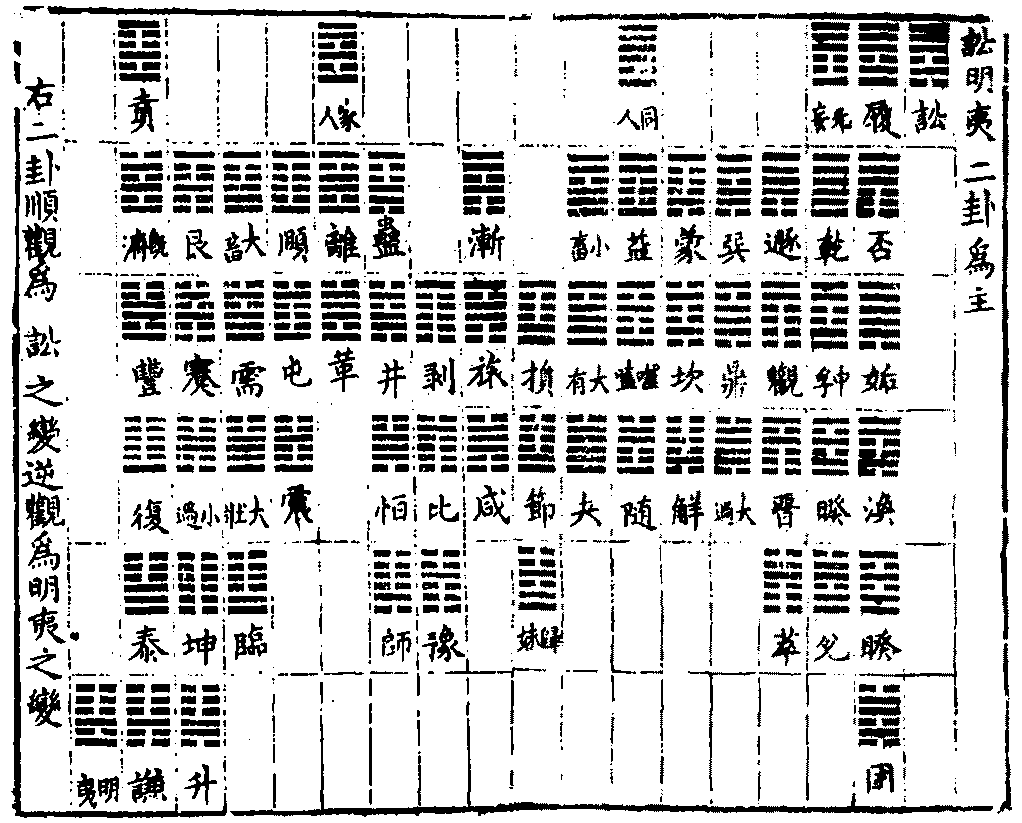 訟明夷二卦為主
訟
履
否
姤
渙
睽
困
无妄
乾
中孚
睽
兌
遯
觀
晋
萃
巽
鼎
大過
蒙
坎
解
同人
益
噬嗑
随
小畜
大有
夬
損
節
歸妹
漸
旅
咸
剥
比
豫
蠱
井
恒
師
家人
離
革
頤
屯
震
大畜
需
大壯
臨
艮
蹇
小過
坤
升
賁
既濟
豐
復
泰
謙
明夷
右二卦順觀為訟之變逆觀為明夷之變